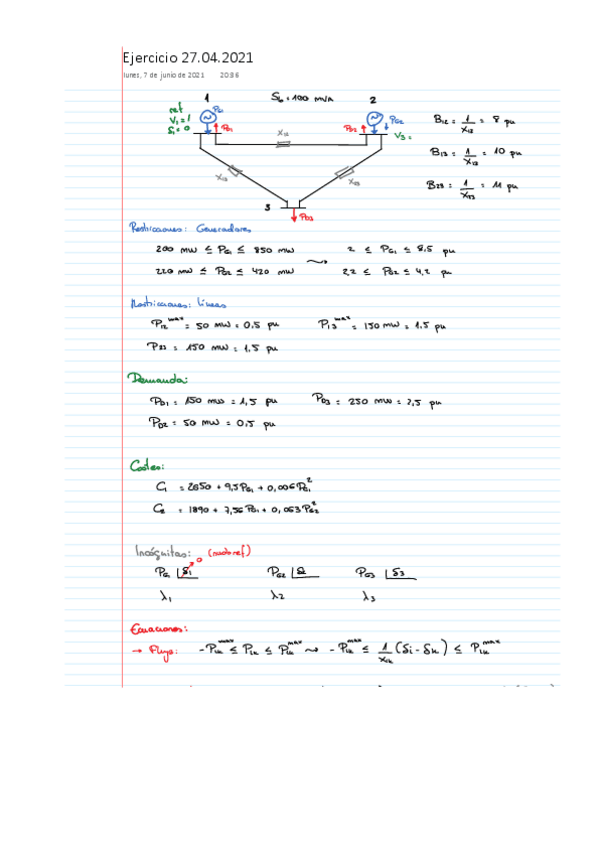 Ejercicio 27.04.2021
lunes, 7 de junio de 2021 20:36
1 Sb = 100 mVA 2
ref PG1 PG2
V1 = 1 PD1 X12 PD2
δ1 = 0 V3 =
B12 = 1/X12 = 8 pu
B13 = 1/X13 = 10 pu
B23 = 1/X23 = 11 pu
X13 X23
3 PD3
Restricciones: Generadores
200 mw ≤ PG1 ≤ 850 mw 2 ≤ PG1 ≤ 8,5 pu
220 mw ≤ PG2 ≤ 420 mw 2,2 ≤ PG2 ≤ 4,2 pu
Restricciones: líneas
P12 max = 50 mw = 0,5 pu P13 max = 150 mw = 1,5 pu
P23 = 150 mw = 1,5 pu
Demanda:
PD1 = 150 mw = 1,5 pu PD3 = 250 mw = 2,5 pu
PD2 = 50 mw = 0,5 pu
Costes:
C1 = 2650 + 9,5PG1 + 0,006PG1²
C2 = 1890 + 7,56PG1 + 0,063PG2²
Incógnitas: 0 (nudo ref)
PG1 δ1 PG2 δ2 PG3 δ3
λ1 λ2 λ3
Ecuaciones:
→ Flujo: -Pik max ≤ Pik ≤ Pik max ⇝ -Pik max ≤ 1/Xik (δi - δk) ≤ Pik max